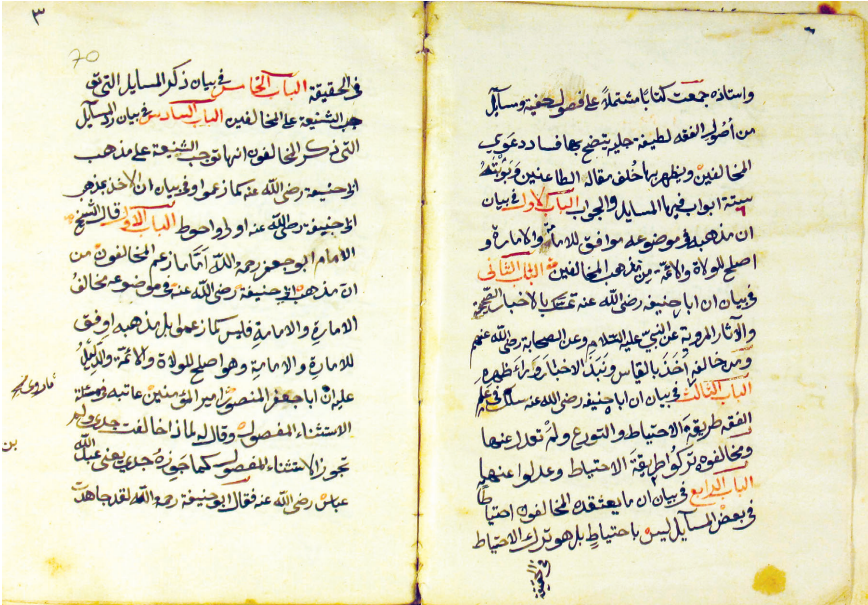 واستاذه جمعت كتابا مشتملا على فصول حفية وسايل
من أصول الفقه لطيفة جلية يتضح بها فساد دعوي
المخالفين ويظهر بها خلف مقالة الطاعنين وبوبته
ستة ابواب فيها المسايل والجواب الباب الاول في بيان
ان مذهبه في موضوعه موافق للامة والامارة و
اصلح للولاة والائمة من مذهب المخالفين الباب الثاني
في بيان ان ابا حنيفة رضى الله عنه تمسك بالاخبار الصحيحة
والآثار المروية عن النبي عليه السلام وعن الصحابة رضى الله عنهم
ومن خالفه أخذ بالقياس ونبذ الاخبار وراء ظهره
الباب الثالث في بيان ان ابا حنيفة رضى الله عنه سلك في علم
الفقه طريقة الاحتياط والتورع ولم تعدل عنها
ومخالفوه تركوا طريقة الاحتياط وعدلوا عنها
الباب الرابع في بيان ان ما يعتقده المخالفون احتياطا
في بعض المسايل ليس باحتياط بل هو ترك الاحتياط
في الحقيقة
٣
70
في الحقيقة الباب الخامس في بيان ذكر المسايل التى تو
جب الشنيعة على المخالفين الباب السادس في بيان رد المسايل
التى ذكر المخالفون انها توجب الشنيعة على مذهب
ابى حنيفة رضى الله عنه كما زعموا وفي بيان ان الاخذ بمذهب
ابى حنيفة رضى الله عنه اولى واحوط الباب الاول قال الشيخ
الامام ابو جعفر رحمه الله امّا ما زعم المخالفون من
انّ مذهب ابى حنيفة رضى الله عنه في موضوعه مخالف
الامارة والامامة فليس كما زعموا بل مذهبه اوفق
للامارة والامامة وهو اصلح للولاة والائمة والدليل
عليه ان ابا جعفر المنصور امير المؤمنين عاتبه في مسئلة
الاستثناء المفصول وقال له لماذا خالفت جدى ولم
تجوز الاستثناء المفصول كما جوزه جدى يعنى عبد الله
بن
عباس رضى الله عنه فقال ابو حنيفة رحمه الله لقد جاهدت